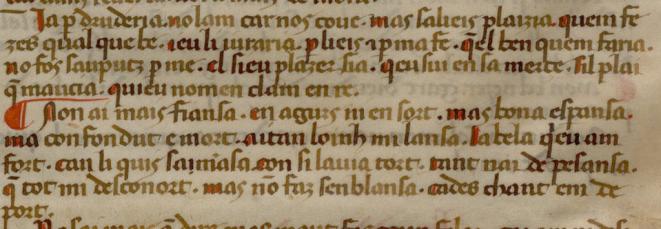 Ia p drudería. no lam car nos coue. mas salieis plaizia. quem fe
zes qual que be. ieu li iuraria. p lieis ⁊ p ma fe. q̃l ben quem faria.
no fos sauputz p me. el sieu plazer sia. qeu sui en sa merce. sil plai
q̃ maucia. quieu nomen clam en re.
Non ai mais fiansa. en agurs ni en sort. mas bona espansa.
ma confondut e mort. aitan loinh mi lansa. la bela q̃ eu am
fort. can li quis samiasa. con si lauia tort. tant nai de pesansa.
q̃ tot mi desconort. mas nō faz senblansa. cades chant em de
port.